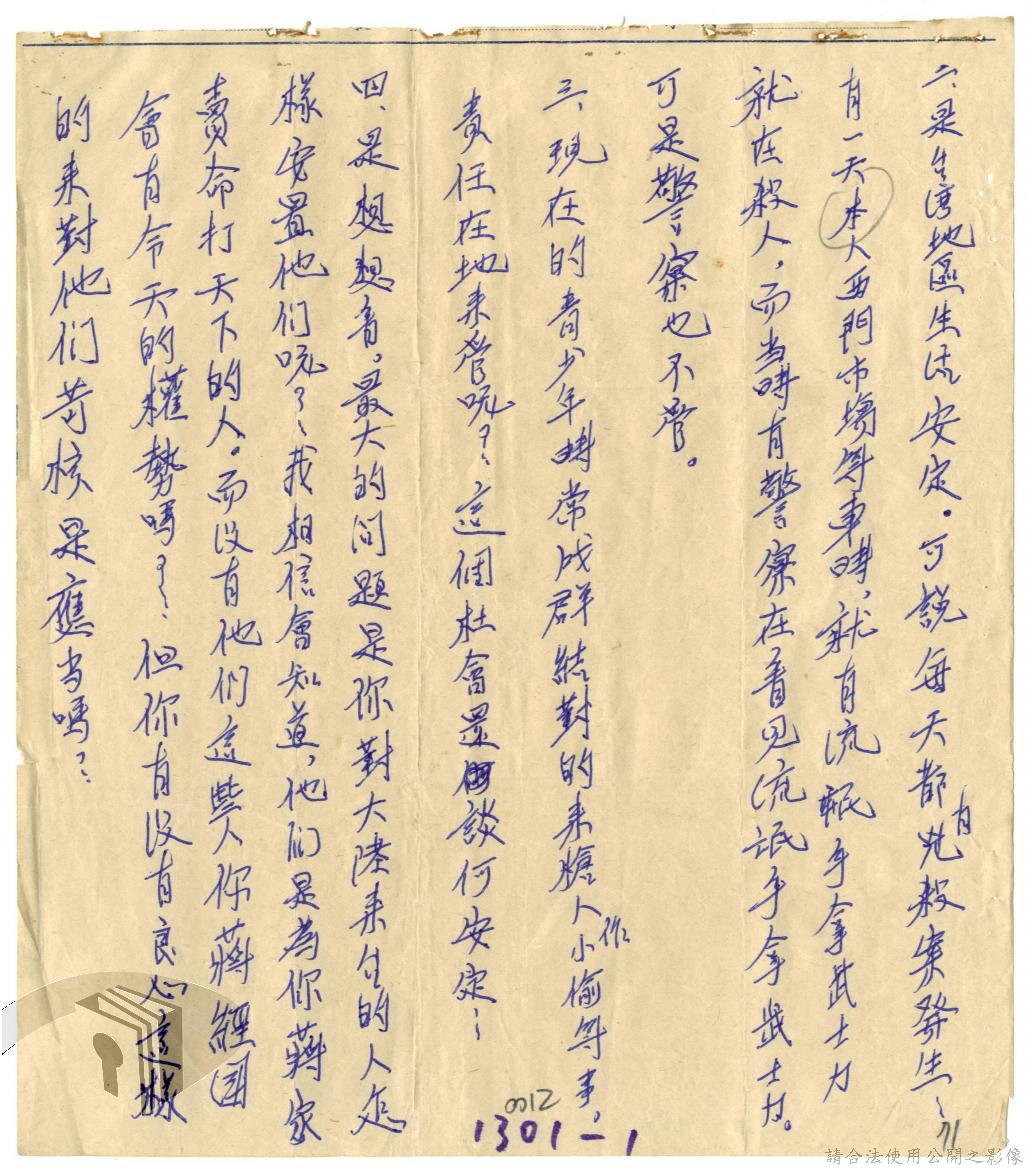 二、是台湾地區生活安定。可說每天都有兇殺案發生、
有一天本人西門市場等車時，就有流氓手拿武士刀
就在殺人，而当時有警察在看見流氓手拿武士刀。
可是警察也不管。
三、現在的青少年時常成群結對的来搶人作小偷等事。
責任在地来管呢？這個社會還談何安定、
四、是想想看。最大的问題是你對大陸来台的人怎
樣安置他們呢？我相信會知道，他们是為你蔣家
賣命打天下的人。而没有他們這些人你蔣經國
會有今天的權勢嗎？但你有没有良心這樣
的来對他们苛核是應当嗎？
0012
1301-1
71
請合法使用公開之影像